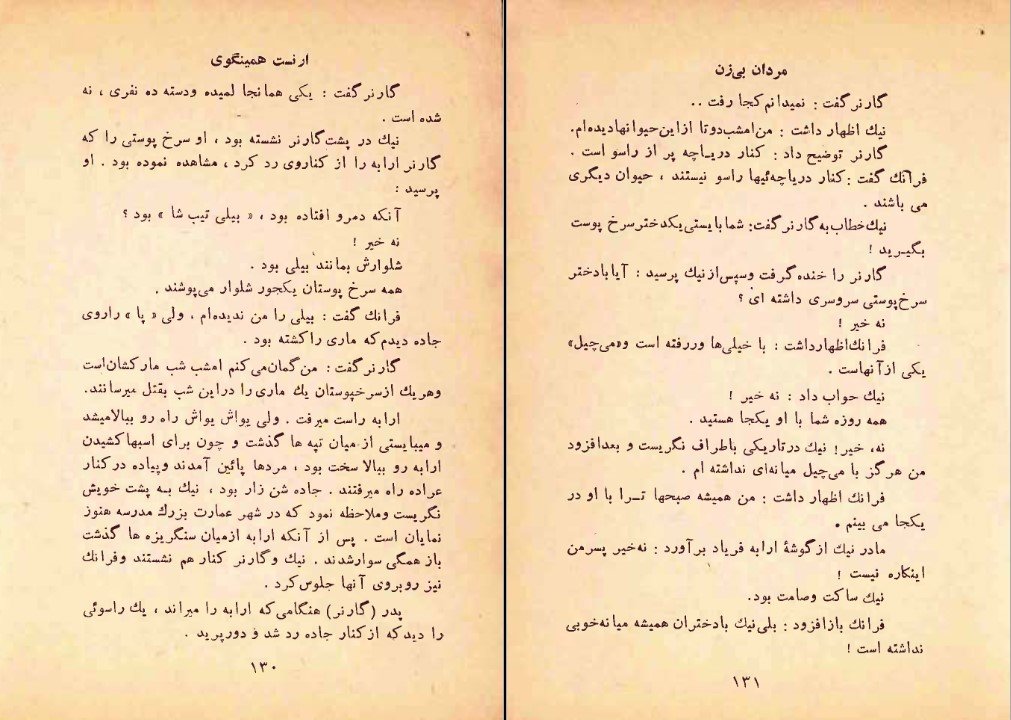 ارنست همینگوی
گارنر گفت : یکی همانجا لمیده ودسته ده نفری ، نه
شده است .
نیك در پشت گارنر نشسته بود ، او سرخ پوستی را که
گارنر ارابه را از کناروی رد کرد ، مشاهده نموده بود . او
پرسید :
آنکه دمرو افتاده بود ، « بیلی تیب شا » بود ؟
نه خیر !
شلوارش بمانند بیلی بود .
همه سرخ پوستان یکجور شلوار می‌پوشند .
فرانك گفت : بیلی را من ندیده‌ام ، ولی « پا » راروی
جاده دیدم که ماری را کشته بود .
گارنر گفت : من گمان می کنم امشب شب مار کشان است
وهریك ازسرخپوستان یك ماری را دراین شب بقتل میرسانند.
ارابه راست میرفت . ولی یواش یواش راه رو ببالا میشد
و میبایستی از میان تپه ها گذشت و چون برای اسبها کشیدن
ارابه رو ببالا سخت بود ، مردها پائین آمدند وپیاده در کنار
عراده راه میرفتند . جاده شن زار بود ، نیك بـه پشت خویش
نگریست وملاحظه نمود که در شهر عمارت بزرك مدرسه هنوز
نمایان است . پس از آنکه ارابه ازمیان سنگریزه ها گذشت
باز همگی سوار شدند . نیك و گارنر کنار هم نشستند وفرانك
نیز روبروی آنها جلوس کرد .
پدر (گارنر) هنگامی که ارابه را میراند ، یك راسوئی
را دید که از کنار جاده رد شد و دور پرید .
۱۳۰
مردان بی‌زن
گارنر گفت : نمیدانم کجا رفت ..
نیك اظهار داشت : من امشب دوتا ازاین حیوانها دیده‌ام.
گارنر توضیح داد : کنار دریـاچه پر از راسو است .
فرانك گفت : کنار دریاچه‌ئیها راسو نیستند ، حیوان دیگری
می باشند .
نیك خطاب به گارنر گفت: شما بایستی یکدختر سرخ پوست
بگیـرید !
گارنر را خنده گرفت وسپس از نیك پرسید : آیا بادختر
سرخ‌پوستی سروسری داشته ای ؟
نه خیر !
فرانك اظهارداشت : با خیلی‌ها وررفته است و«می‌چیل»
یکی از آنهاست .
نیك حواب داد : نه خیر !
همه روزه شما با او یکجا هستید .
نه، خیر! نیك درتاریکی باطراف نگریست و بعدافزود
من هر گز با می‌چیل میانه‌ای نداشته ام .
فرانك اظهار داشت : من همیشه صبحها تـرا با او در
یکجا می بینم .
مادر نیك از گوشهٔ ارابه فریاد بر آورد : نه‌خیر پسرمن
اینکاره نیست !
نیك ساکت وصامت بود.
فرانك باز افزود : بلی نیك بادختران همیشه میانه‌خوبی
نداشته است !
۱۳۱